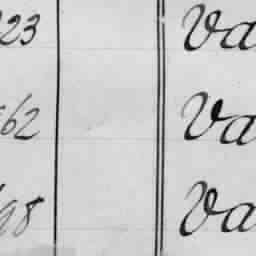 23 Va
62 Va
98 Va